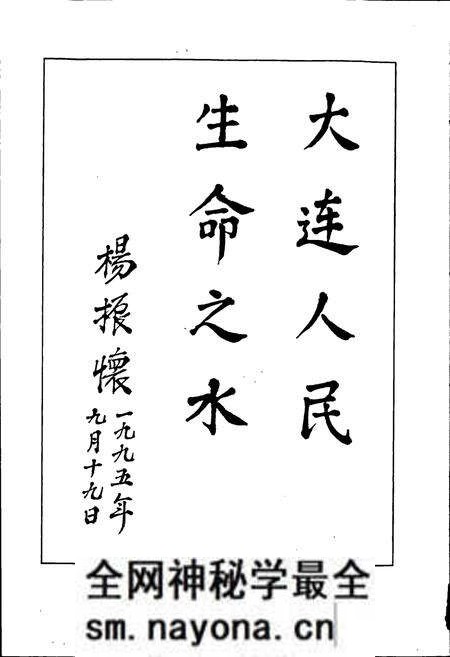 大连人民
生命之水
楊振懷
一九九五年
九月十九日
全网神秘学最全
sm.nayona.cn